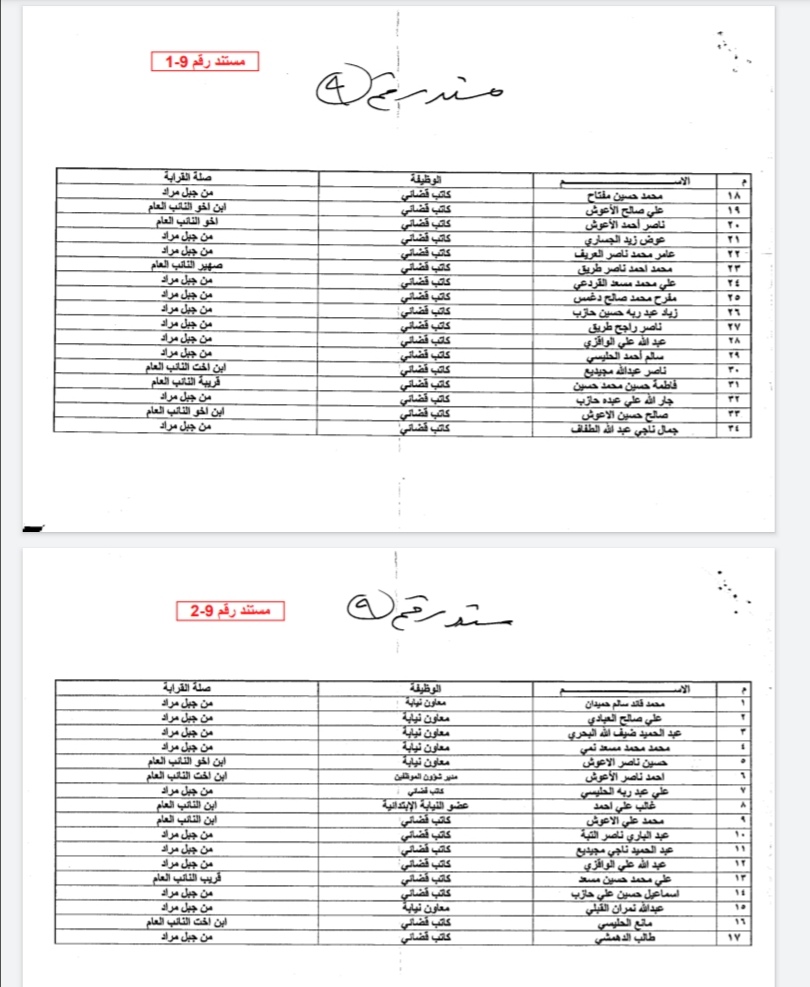 مستند رقم 9-1
مستند رقم (٩)
م الاســـــــم الوظيفة صلة القرابة
١٨ محمد حسين مفتاح كاتب قضائي من جبل مراد
١٩ علي صالح الأعوش كاتب قضائي ابن اخو النائب العام
٢٠ ناصر أحمد الأعوش كاتب قضائي اخو النائب العام
٢١ عوض زيد الجساري كاتب قضائي من جبل مراد
٢٢ عامر محمد ناصر العريف كاتب قضائي من جبل مراد
٢٣ محمد احمد ناصر طريق كاتب قضائي صهير النائب العام
٢٤ علي محمد مسعد القردعي كاتب قضائي من جبل مراد
٢٥ مفرح محمد صالح دغمس كاتب قضائي من جبل مراد
٢٦ زياد عبد ربه حسين حازب كاتب قضائي من جبل مراد
٢٧ ناصر راجح طريق كاتب قضائي من جبل مراد
٢٨ عبد الله علي الواقزي كاتب قضائي من جبل مراد
٢٩ سالم أحمد الحليسي كاتب قضائي من جبل مراد
٣٠ ناصر عبدالله مجيديع كاتب قضائي ابن اخت النائب العام
٣١ فاطمة حسين محمد حسين كاتب قضائي قريبة النائب العام
٣٢ جار الله علي عبده حازب كاتب قضائي من جبل مراد
٣٣ صالح حسين الاعوش كاتب قضائي ابن اخو النائب العام
٣٤ جمال ناجي عبد الله الطفاف كاتب قضائي من جبل مراد
مستند رقم 9-2
مستند رقم (٩)
م الاســـــــم الوظيفة صلة القرابة
١ محمد قائد سالم حميدان معاون نيابة من جبل مراد
٢ علي صالح العبادي معاون نيابة من جبل مراد
٣ عبد الحميد ضيف الله البحري معاون نيابة من جبل مراد
٤ محمد محمد مسعد نمي معاون نيابة من جبل مراد
٥ حسين ناصر الاعوش معاون نيابة ابن اخو النائب العام
٦ احمد ناصر الأعوش مدير شؤون الموظفين ابن اخت النائب العام
٧ علي عبد ربه الحليسي كاتب قضائي من جبل مراد
٨ غالب علي احمد عضو النيابة الإبتدائية ابن النائب العام
٩ محمد علي الاعوش كاتب قضائي ابن النائب العام
١٠ عبد الباري ناصر التبة كاتب قضائي من جبل مراد
١١ عبد الحميد ناجي مجيديع كاتب قضائي من جبل مراد
١٢ عبد الله علي الواقزي كاتب قضائي من جبل مراد
١٣ علي محمد حسين مسعد كاتب قضائي قريب النائب العام
١٤ اسماعيل حسين علي حازب كاتب قضائي من جبل مراد
١٥ عبدالله نمران القبلي معاون نيابة من جبل مراد
١٦ مانع الحليسي كاتب قضائي ابن اخت النائب العام
١٧ طالب الدهمشي كاتب قضائي من جبل مراد